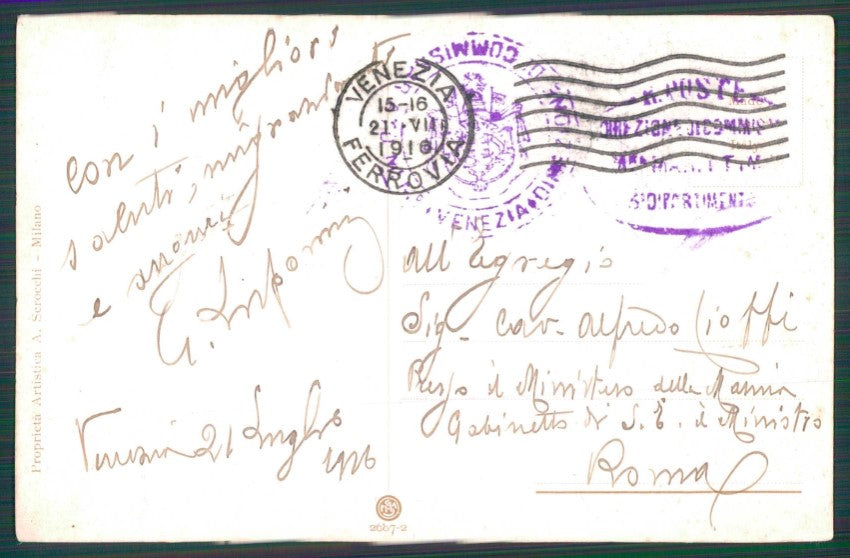 con i migliori
saluti, ringraziamenti
e auguri
G.
Venezia 21 Luglio
1916
VENEZIA
15-16
21 VII
1916
FERROVIA
COMMIS
VENEZIA
R. POSTE
DIREZIONE DI COMMIS
MARITTIM
3º DIPARTIMENTO
all'Egregio
Sig. Cav. Alfredo Cioffi
Presso il Ministero della Marina
Gabinetto di S. E. il Ministro
Roma
Proprietà Artistica A. Scrocchi - Milano
2687-2